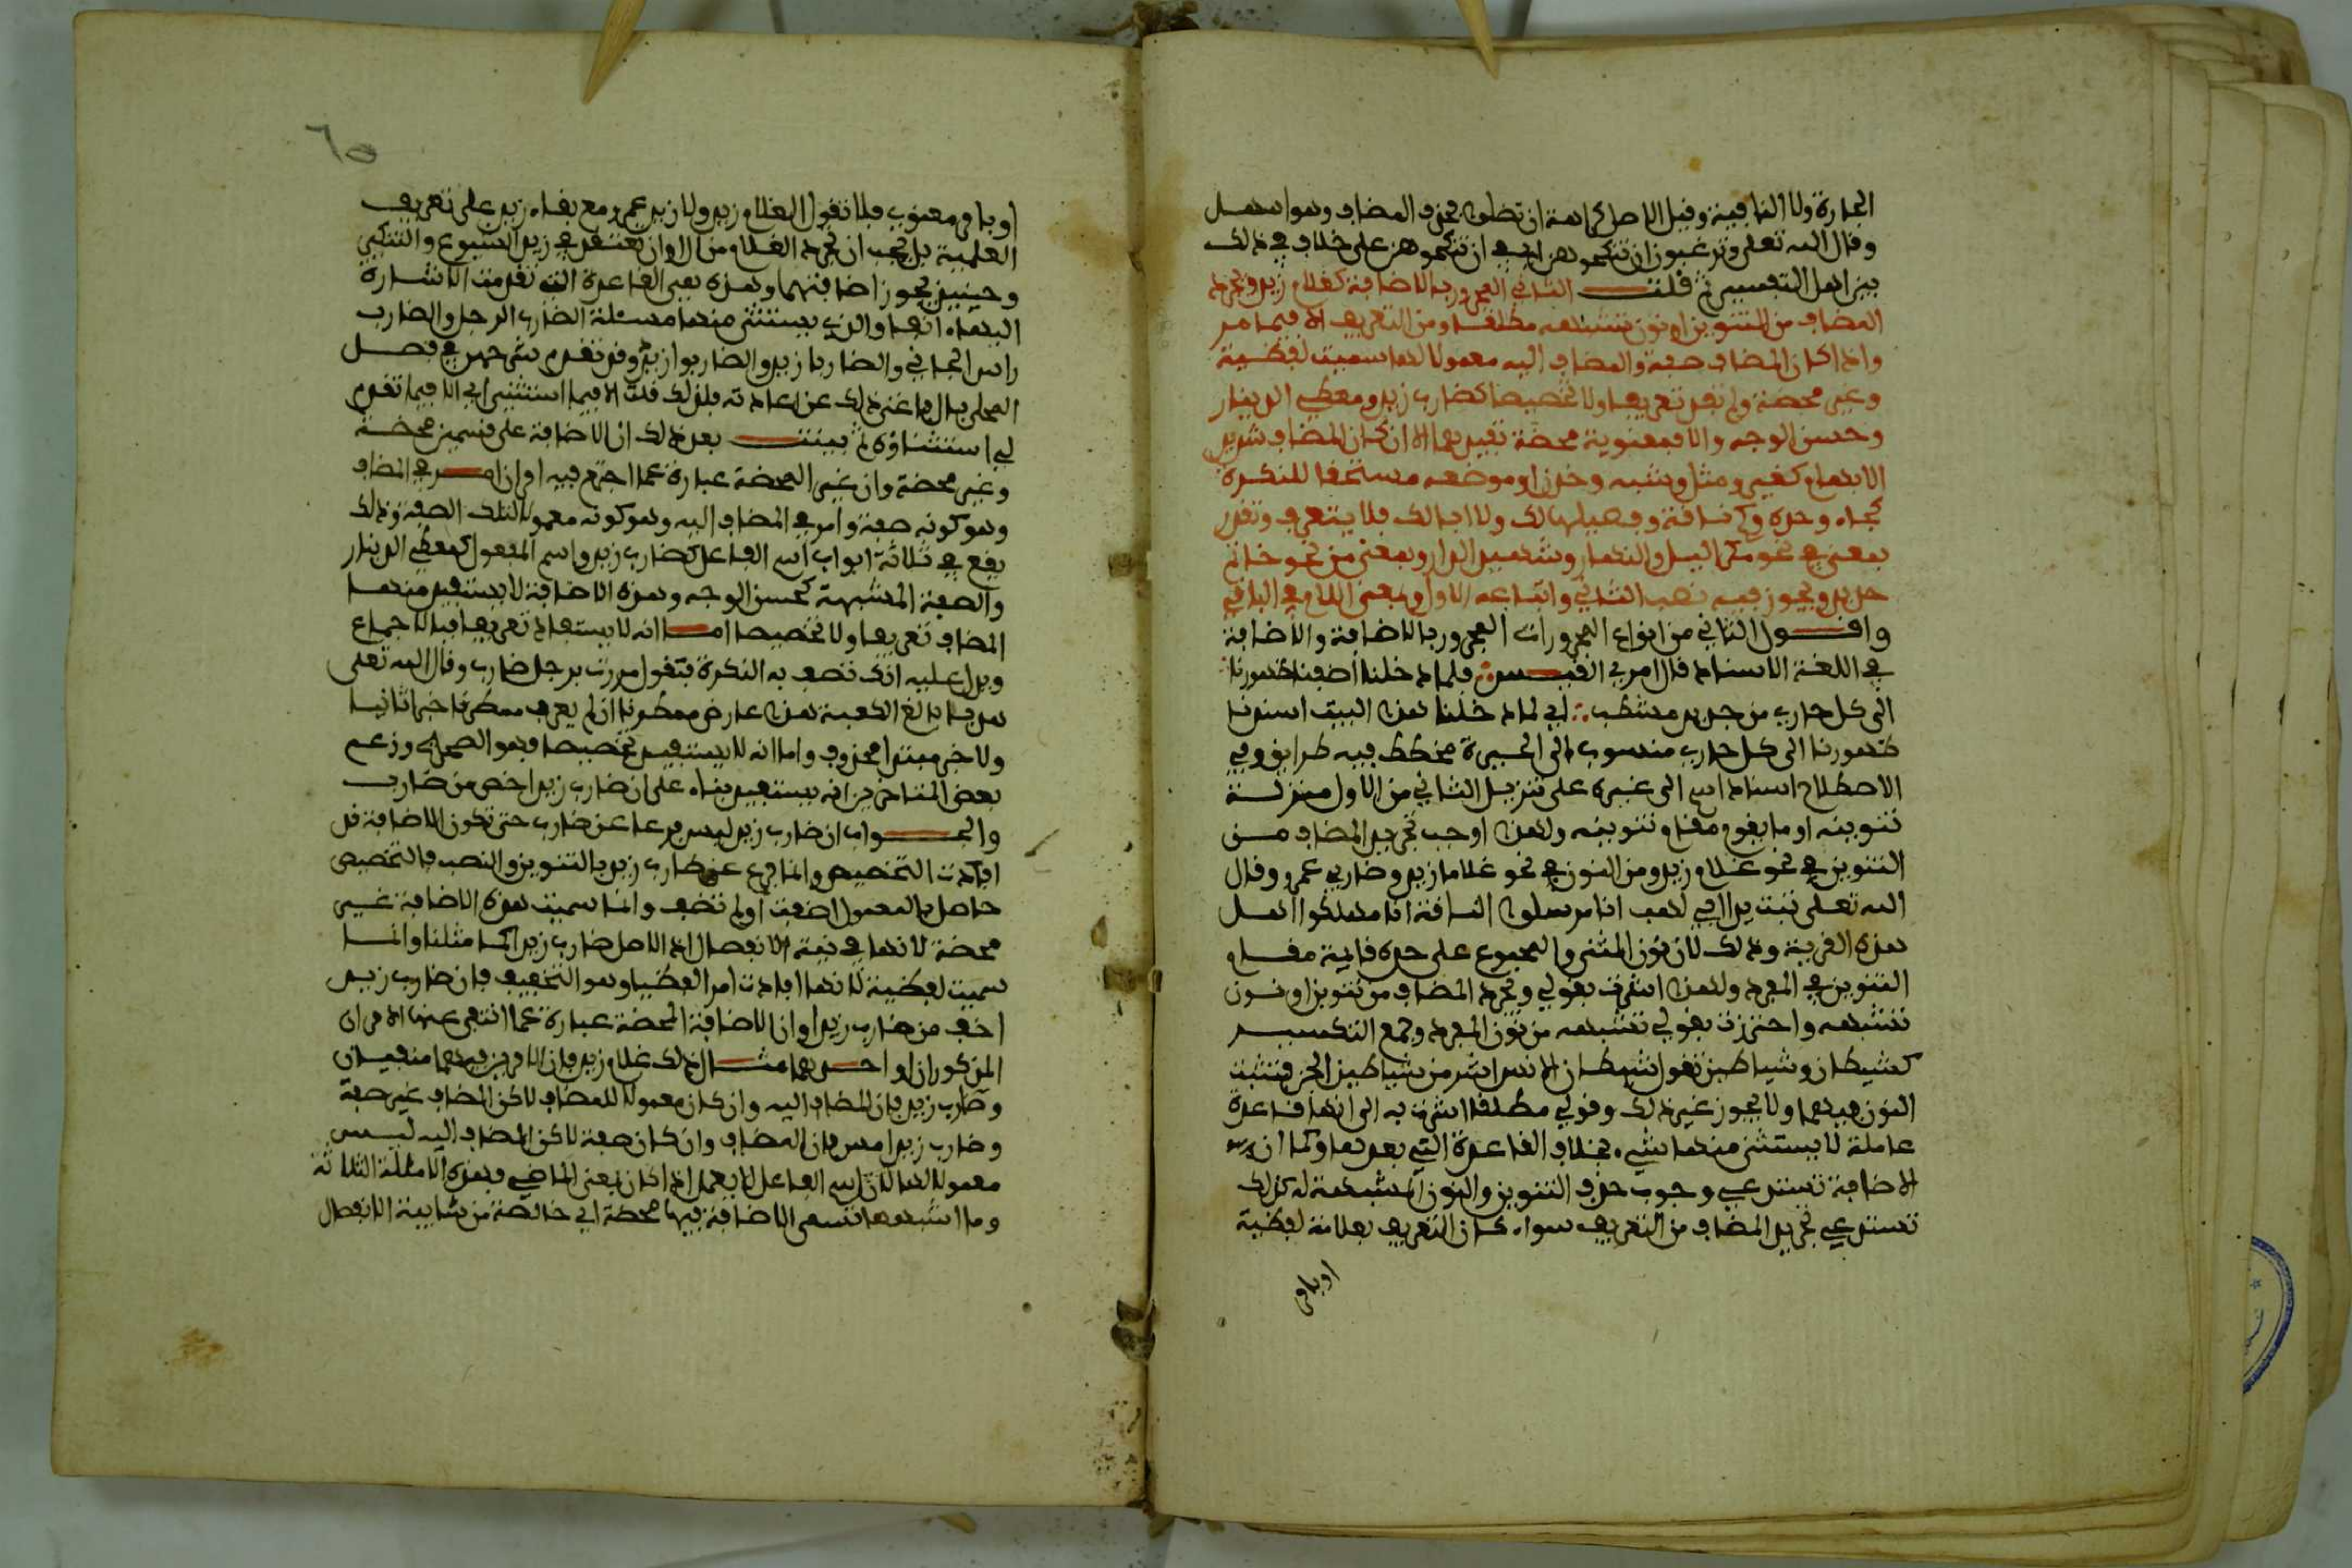 الجارة ولا النافية وقيل الاصل كراهة ان تضلوا بحذف المضاف وهو اسهل
وقال الله تعلى وترغبون ان تنكحوهن اي في ان تنكحوهن على خلاف في ذلك
بين اهل التفسير ثم قلت الثاني المجرور بالاضافة كغلام زيد ويجرد
المضاف من التنوين او نون تشبهه مطلقا ومن التعريف الا فيما مر
واذا كان المضاف صفة والمضاف اليه معمولا لها سميت لفظية
وغير محضة ولم تفد تعريفا ولا تخصيصا كضارب زيد ومعطي الدينار
وحسن الوجه والا فمعنوية محضة تفيدهما الا ان كان المضاف شديد
الابهام كغير ومثل وشبه وخدن او موضعه مستحقا للنكرة
كجاء وحده وكم ناقة وفصيلها لك ولا ابا لك فلا يتعرف وتقدر
بمعنى في نحو مكر اليل والنهار وشهيد الدار وبمعنى من نحو خاتم
حديد ويجوز فيه نصب الثاني واتباعه الاول وبمعنى اللام في الباقي
واقول الثاني من انواع المجرورات المجرور بالاضافة والاضافة
في اللغة الاسناد قال امرئ القيس فلما دخلنا اضفنا ظهورنا
الى كل حاري من جديد مشطب اي لما دخلنا هذا البيت اسندنا
ظهورنا الى كل حاري منسوب الى الحيرة مخطط فيه طرايق وفي
الاصطلاح اسناد اسم الى غيره على تنزيل الثاني من الاول منزلة
تنوينه او ما يقوم مقام تنوينه ولهذا وجب تجريد المضاف من
التنوين في نحو غلام زيد ومن النون في نحو غلاما زيد وضاربي عمرو وقال
الله تعلى تبت يدا ابي لهب انا مرسلوا الناقة انا مهلكوا اهل
هذه القرية وذلك لان نون المثنى والمجموع على حده قايمة مقام
التنوين في المفرد ولهذا اشرت بقولي ويجرد المضاف من تنوين او نون
تشبهه واحترزت بقولي تشبهه من نون المفرد وجمع التكسير
كشيطان وشياطين تقول شيطان الانس اشر من شياطين الجن فتثبت
النون فيهما ولا يجوز غير ذلك وقولي مطلقا اشرت به الى انها قاعدة
عاملة لا يستثنى منها شيء بخلاف القاعدة التي بعدها وكما ان
الاضافة تستدعي وجوب حذف التنوين والنون المشبهة له كذلك
تستدعي تجريد المضاف من التعريف سواء كان التعريف بعلامة لفظية
او بامر
٦٥
او بامر معنوي فلا تقول الغلام زيد ولا زيد عمرو مع بقاء زيد على تعريف
العلمية بل يجب ان تجرد الغلام من ال وان تعتقد في زيد الشيوع والتنكير
وحينئذ يجوز اضافتهما وهذه هي القاعدة التي تقدمت الاشارة
اليها انفا والذي يستثنى منها مسئلة الضارب الرجل والضارب
راس الجاني والضاربا زيد والضاربوا زيد وقد تقدم شرحهن في فصل
المحلى بال فاغنى ذلك عن اعادته فلذلك قلت الا فيما استثني اي الا فيما تقدم
لي استثناؤه ثم بينت بعد ذلك ان الاضافة على قسمين محضة
وغير محضة وان غير المحضة عبارة عما اجتمع فيه امران امر في المضاف
وهو كونه صفة وامر في المضاف اليه وهو كونه معمولا لتلك الصفة وذلك
يقع في ثلاثة ابواب اسم الفاعل كضارب زيد واسم المفعول كمعطي الدينار
والصفة المشبهة كحسن الوجه وهذه الاضافة لا يستفيد منها
المضاف تعريفا ولا تخصيصا اما انه لا يستفاد تعريفا فبالاجماع
ويدل عليه انك تصف به النكرة فتقول مررت برجل ضارب وقال الله تعلى
هديا بالغ الكعبة هذا عارض ممطرنا ان لم يعرف ممطرنا خبرا ثانيا
ولا خبر مبتدا محذوف واما انه لا يستفيد تخصيصا فهو الصحيح وزعم
بعض المتاخرين انه يستفيده بناء على ان ضارب زيد اخص من ضارب
والجواب ان ضارب زيد ليس فرعا عن ضارب حتى تكون الاضافة قد
افادت التخصيص وانما فرع عن ضارب زيد بالتنوين والنصب فالتخصيص
حاصل بالمعمول اضفت اولم تضف وانما سميت هذه الاضافة غير
محضة لانها في نية الانفصال اذ الاصل ضارب زيدا كما مثلنا وانما
سميت لفظية لانها افادت امرا لفظيا وهو التخفيف فان ضارب زيد
اخف من ضارب زيدا وان الاضافة المحضة عبارة عما انتفى عنها الامران
المذكوران او احدهما مثال ذلك غلام زيد فان الامرين فيهما منتفيان
وضارب زيد فان المضاف اليه وان كان معمولا للمضاف لاكن المضاف غير صفة
وضارب زيد امس فان المضاف وان كان صفة لاكن المضاف اليه ليس
معمولا لها لان اسم الفاعل لا يعمل اذا كان بمعنى الماضي فهذه الامثلة الثلاثة
وما اشبهها تسمى الاضافة فيها محضة اي خالصة من شايبة الانفصال